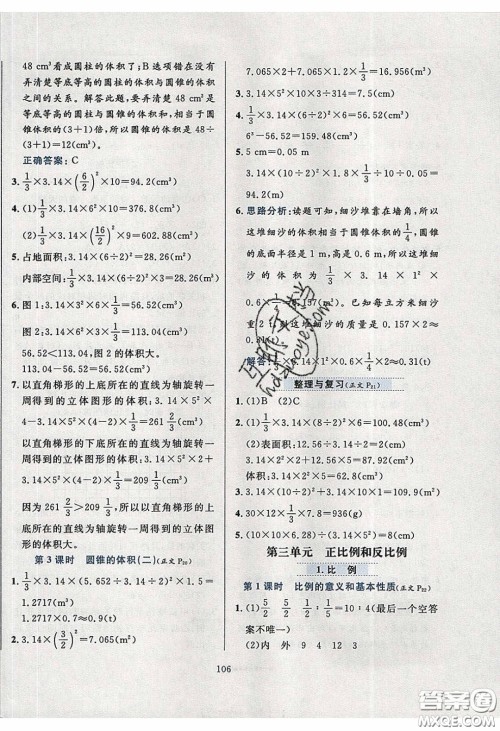 48 cm³看成圆柱的体积了；B选项错在没有
弄清楚等底等高的圆柱的体积与圆锥体积
之间的关系。解答此题，要弄清楚 48 cm³
是等底等高的圆锥体积与圆柱的体积和，相当于
圆锥体积的(3+1)倍，所以圆锥的体积 48÷
(3+1)=12(cm³)。
正确答案：C
3. 1/3×3.14×(6/2)²×10=94.2(cm³)
4. (1) 1/3×3.14×6²×10=376.8(cm³)
(2) 1/3×3.14×(16/2)²×9=602.88(cm³)
5. 占地面积：3.14×(6÷2)²=28.26(m²)
内部空间：1/3×3.14×(6÷2)²×3=28.26(m³)
6. 图1：3.14×3²×6×1/3=56.52(cm³)
图2：3.14×(6÷2)²×12×1/3=113.04(cm³)
56.52<113.04 图2的体积大。
7. 以直角梯形的上底所在的直线为轴旋转一
周得到的立体图形的体积：3.14×5²×
4-3.14×5²×2×1/3=261 2/3(cm³)
以直角梯形的下底所在的直线为轴旋转一
周得到的立体图形的体积：3.14×5²×2+
3.14×5²×2×1/3=209 1/3(cm³)
因为 261 2/3>209 1/3，所以以直角梯形的
上底所在的直线为轴旋转一周得到的立体
图形的体积大。
第3课时 圆锥的体积(二)(正文P20)
1. 1/3×3.14×(3.6÷2)²×(5.652÷3.14)+
1.2717(m³)
3.14×(3.6÷2)²×(5.652÷3.14)×1/3=
1.2717(m³)
2. 3.14×(3/2)²=7.065(m²)
7.065×2+7.065×1.2×1/3=16.956(m³)
3. 3.14×5²×10×3÷314=7.5(cm)
4. 1/3×3.14×(6÷2)²×6=56.52(cm³)
6³-56.52=159.48(cm³)
5. 5 cm=0.05 m
1/3×3.14×(6÷2)²×1.5÷(3×0.05)=
94.2(m)
6. 思路分析：读题可知，细沙堆靠在墙角，所以
这堆细沙的体积相当于圆锥体积的1/4，圆锥
的底面半径是1 m，高是0.6 m。这堆细沙
的体积为1/3×3.14×1²×
0.6×1/4=0.157(m³)。已知每立方米细沙
重2 t，则这堆细沙的质量是 0.157×2≈
0.3(t)。
解答：1/3×3.14×1²×0.6×1/4×2≈0.3(t)
整理与复习(正文P21)
1. (1)B (2)C
2. (1)1/3×3.14×(6÷2)²×8=75.36(cm³)
(2)表面积：2×3.14×2×5+2×
3.14×2²=87.92(cm²)
体积：3.14×2²×5=62.8(cm³)
3. 3.14×(10÷2)²×1/3×8=209 1/3(cm³)
4. 30×12×1/3×7.8=936(g)
5. (10×10×6.28)÷(3.14×2²)=50(cm)
第三单元 正比例和反比例
1.比 例
第1课时 比例的意义和基本性质(正文P22)
1. (1)5/2 5/2 1/2：1/5=10：4(最后一个空答
案不唯一)
(2)内 外 9 4 12 3
106
答案圈
MXQE.COM